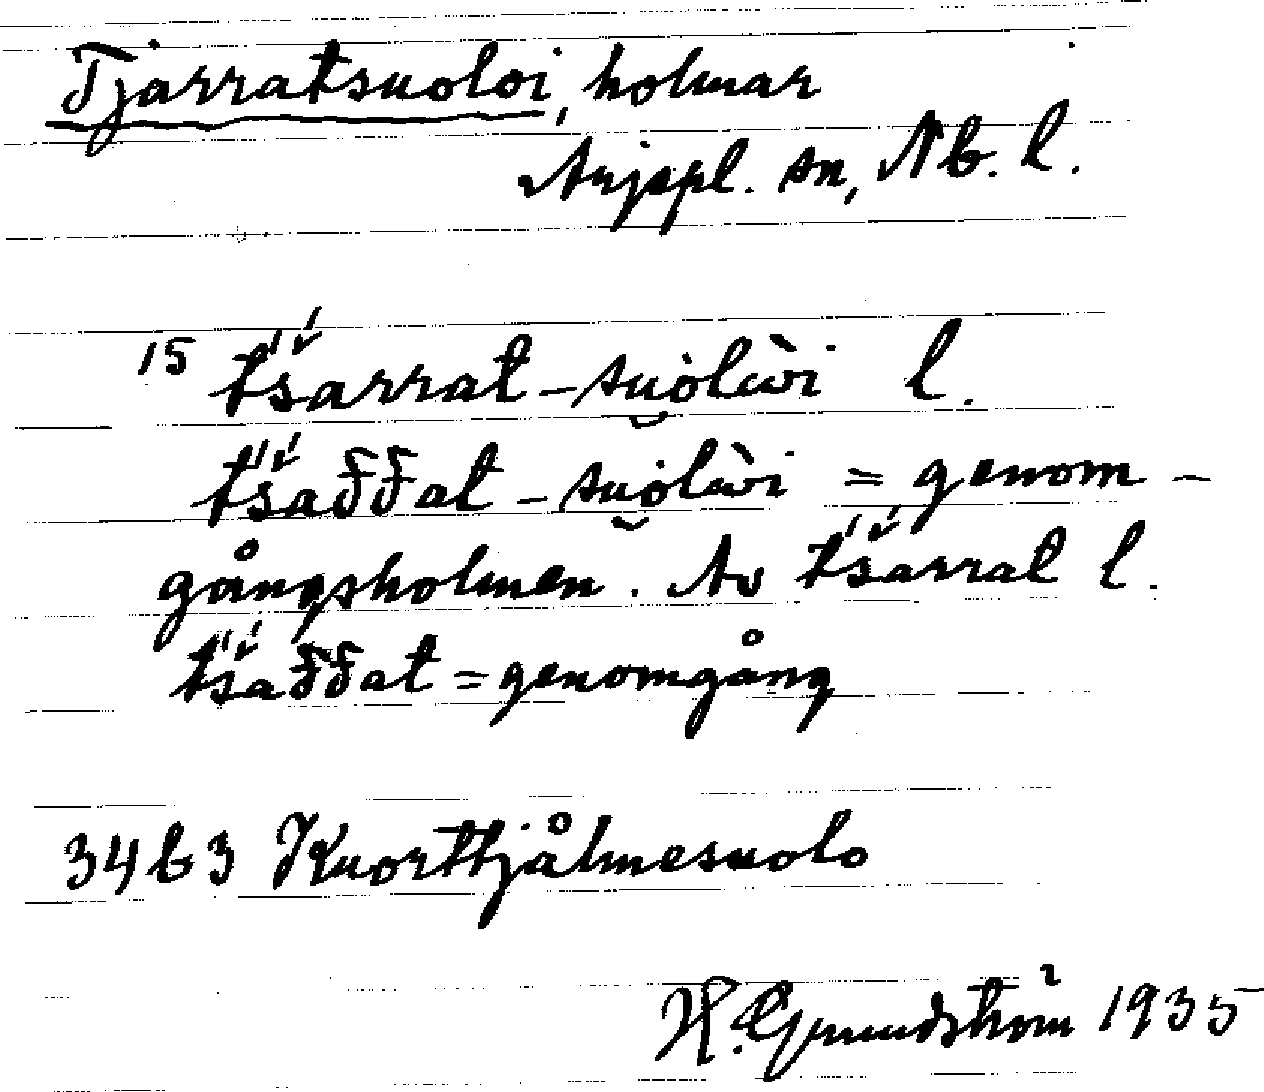 Tjarratsuoloi, holmar
Arjepl. sn, Nb. l.
15 t́š́arrat-suòlàẁi l.
t́š́ađđat-suòlàẁi = genom-
gångsholmen. Av t́š́arrat l.
t́š́ađđat = genomgång
34b3 Kuorttjålmesuolo
H. Grundström 1935